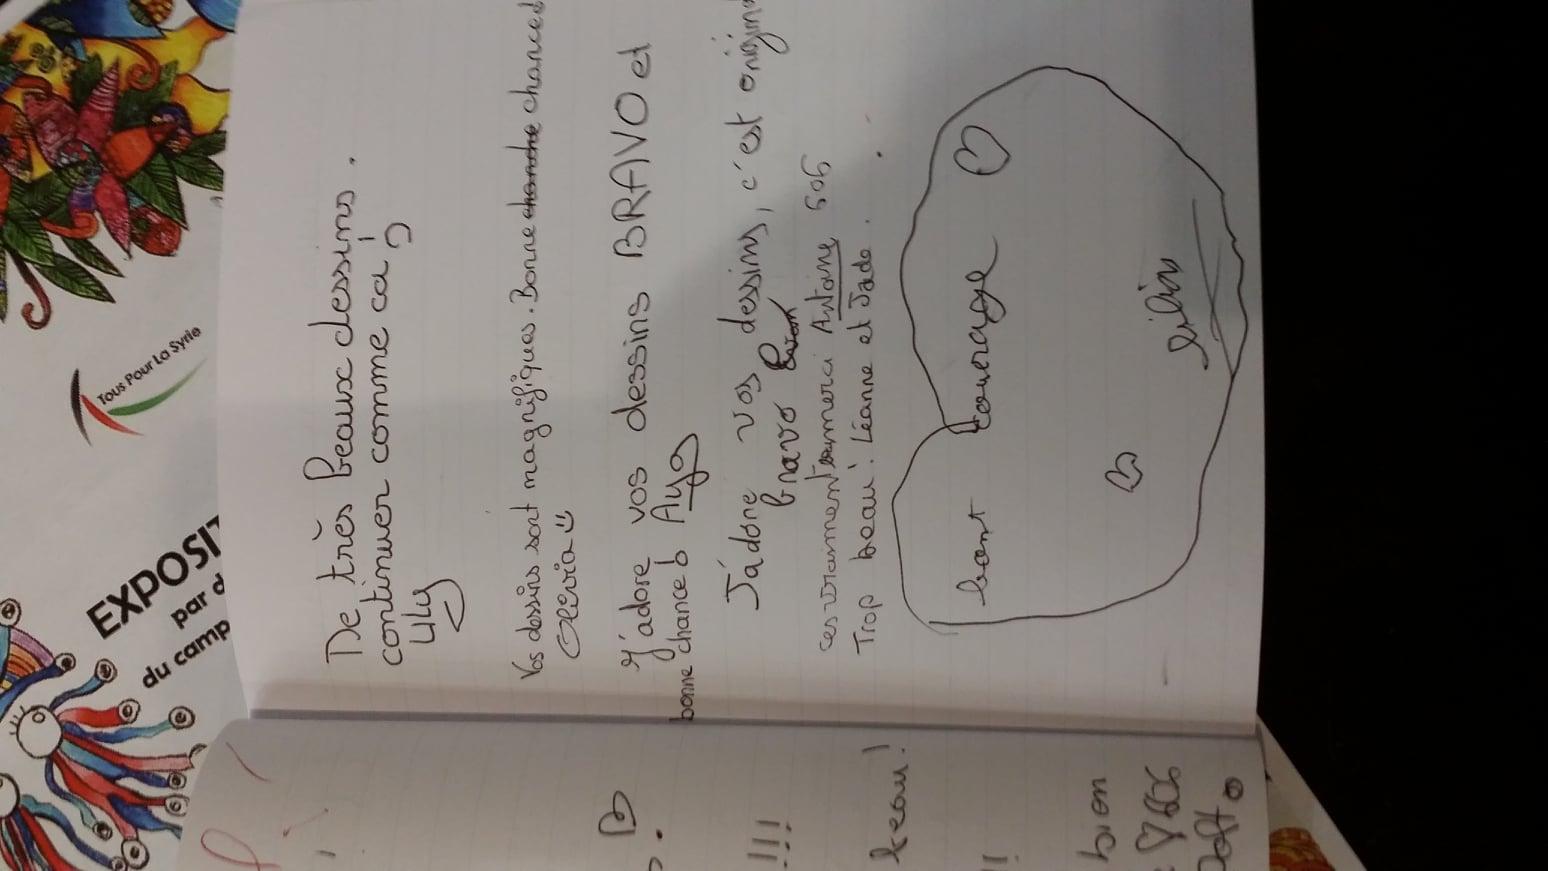 De très beaux dessins.
continuer comme ca!
Lily
Vos dessins sont magnifiques. Bonne chanche chances
Olivia
J'adore vos dessins BRAVO et
bonne chance Aya
J'adore vos dessins, c'est origina
bravo
ces vraiment merci Antoine 506
Trop beau! Léanne et Jade.
bont courage
lilin
TOUS POUR LA SYRIE
EXPOSIT
par d
du camp
!!!
beau!
bien